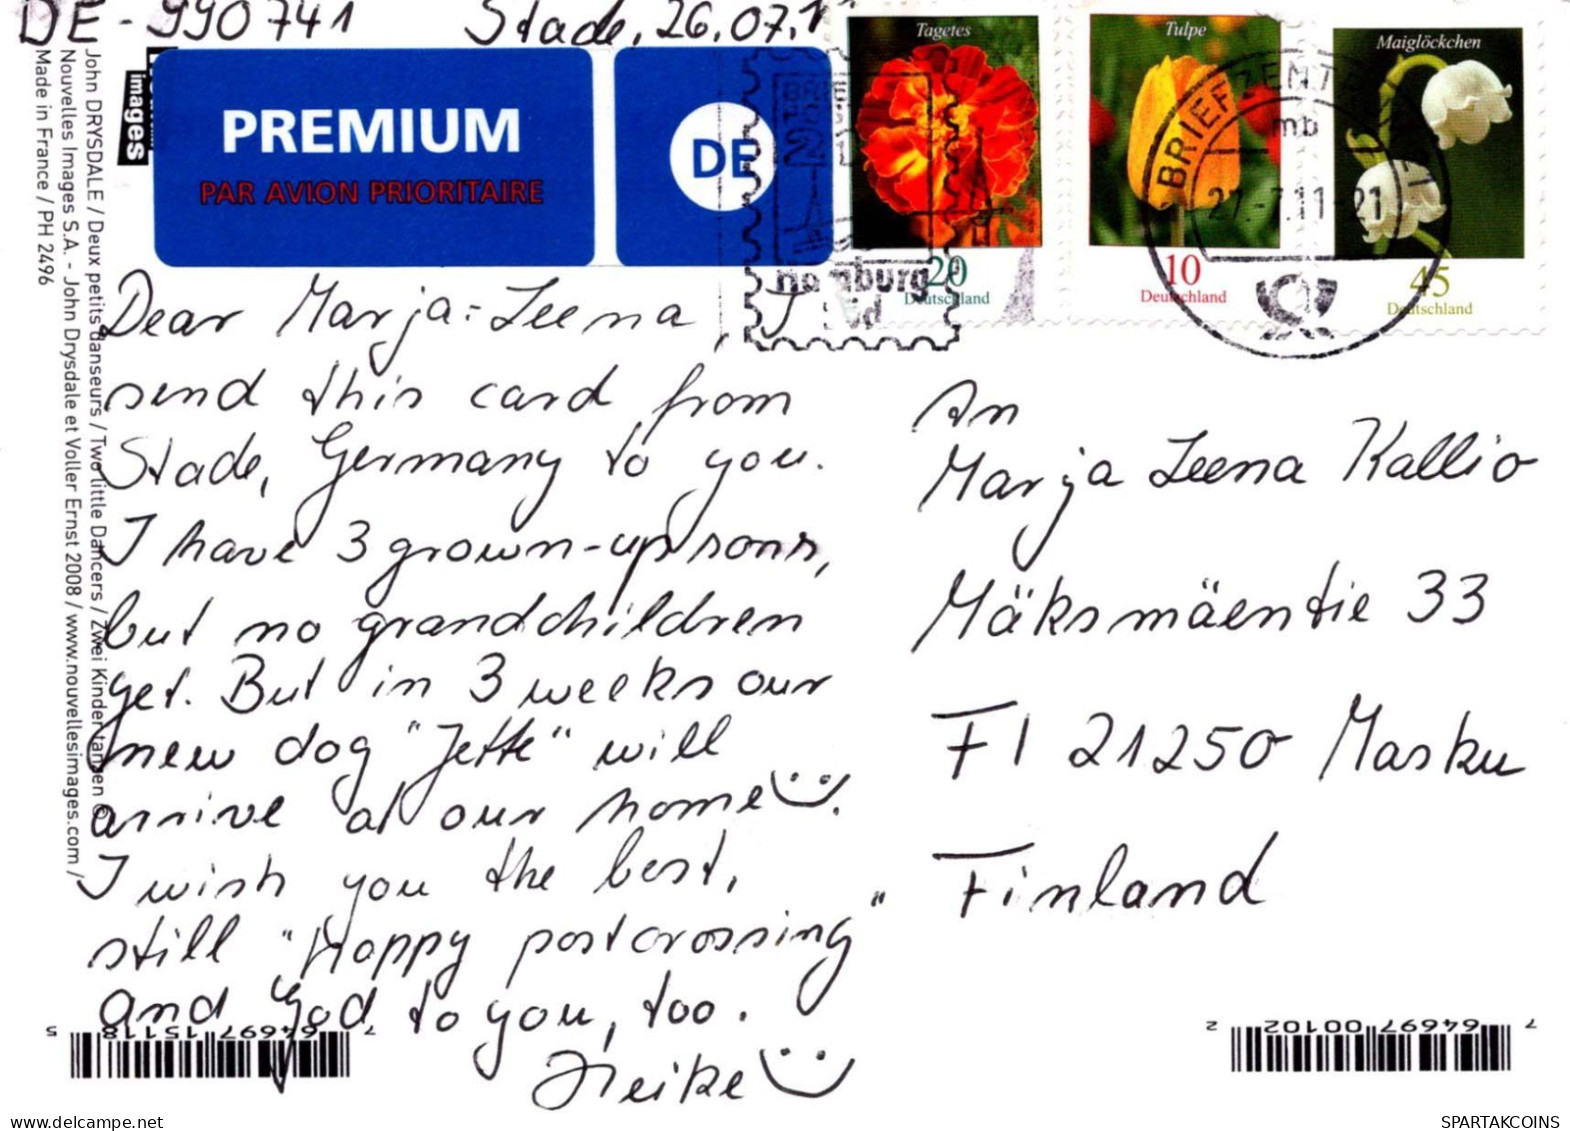 DE-990741 Stade, 26.07.1
John DRYSDALE / Deux petits danseurs / Two little Dancers / Zwei Kinder tanzen ©
Nouvelles Images S.A. - John Drysdale et Voller Ernst 2008 / www.nouvellesimages.com /
Made in France / PH 2496
images
PREMIUM
PAR AVION PRIORITAIRE
DE
Tagetes
20
Deutschland
Tulpe
10
Deutschland
Maiglöckchen
45
Deutschland
BRIEFZENT
mb
27.-7.11-21
Dear Marja-Leena, I
send this card from
Stade, Germany to you.
I have 3 grown-up sons,
but no grandchildren
yet. But in 3 weeks our
new dog "Jette" will
arrive at our home.
I wish you the best,
still "Happy postcrossing"
and God to you, too.
Heike
An
Marja Leena Kallio
Mäksmäentie 33
FI 21250 Masku
Finland
7 64697 15118 5
7 64697 00102 2
SPARTAKCOINS
www.delcampe.net